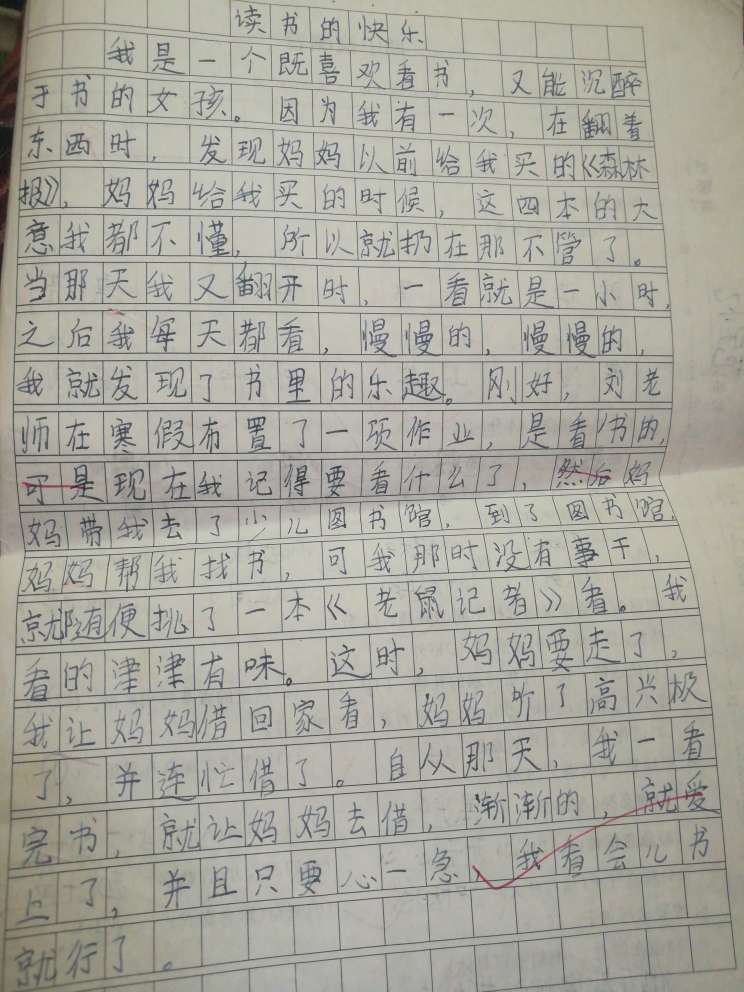 读书的快乐
我是一个既喜欢看书，又能沉醉
于书的女孩。因为我有一次，在翻看
东西时，发现妈妈以前给我买的《森林
报》，妈妈给我买的时候，这四本的大
意我都不懂，所以就扔在那不管了。
当那天我又翻开时，一看就是一小时，
之后我每天都看，慢慢的，慢慢的，
我就发现了书里的乐趣。刚好，刘老
师在寒假布置了一项作业，是看书的，
可是现在我记得要看什么了，然后妈
妈带我去了少儿图书馆，到了图书馆，
妈妈帮我找书，可我那时没有事干，
就随便挑了一本《老鼠记者》看。我
看的津津有味。这时，妈妈要走了，
我让妈妈借回家看，妈妈听了高兴极
了，并连忙借了。自从那天，我一看
完书，就让妈妈去借，渐渐的，就爱
上了，并且只要心一急，我看会儿书
就行了。